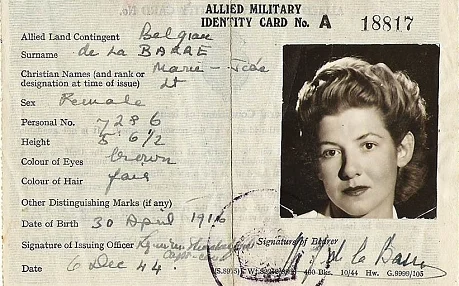 ALLIED MILITARY
IDENTITY CARD No. A 18817
Allied Land Contingent Belgian
Surname de La BARRE
Christian Names (and rank or Marie-José
designation at time of issue) Lt
Sex Female
Personal No. 7286
Height 5' 6½
Colour of Eyes brown
Colour of Hair fair
Other Distinguishing Marks (if any)
Date of Birth 30 April 1916
Signature of Issuing Officer
Signature of Bearer
Date 6 Dec 44.
M J de la Barre
10/44 Hw. G.9999/105